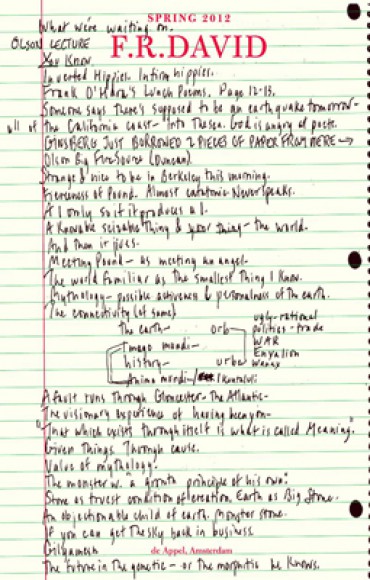 SPRING 2012
What we're waiting on.
OLSON LECTURE
F.R.DAVID
You Know
Inverted Hippies. Infirm hippies.
Frank O'Hara's Lunch Poems. Page 12-13.
Someone says there's supposed to be an earthquake tomorrow-
all of the California coast- Into The sea. God is angry at poets.
GINSBERG JUST BORROWED 2 PIECES OF PAPER FROM HERE →
Olson Big Fire Source (Duncan).
Strange & nice to be in Berkeley this morning.
Fierceness of Pound. Almost catatonic Never speaks.
A 1 only so if it produces a 1.
A Knowable seizable Thing & your thing- the world.
And then it gives.
Meeting Pound- as meeting an angel.
The world familiar as the smallest Thing I Know.
Mythology- possible activeness & personalness of The earth.
The connectivity (of same)
the earth- orb
Imago mundi-
history- urbe
Anima mundi-
ugly-rational
politics - trade
WAR
Enyalion
wanax
A fault runs Through Gloucester- The Atlantic-
The visionary experience of having been you-
"That which exists through itself is what is called Meaning."
Given Things Through cause.
Value of mythology!
The monster w. "a growth principle of his own."
Stone as truest condition of creation. Earth as Big Stone.
An objectionable child of earth. Monster stone.
If you can get The sky back in business.
Gilgamesh
de Appel, Amsterdam
The future in The genetic - or the morphitic he Knows.